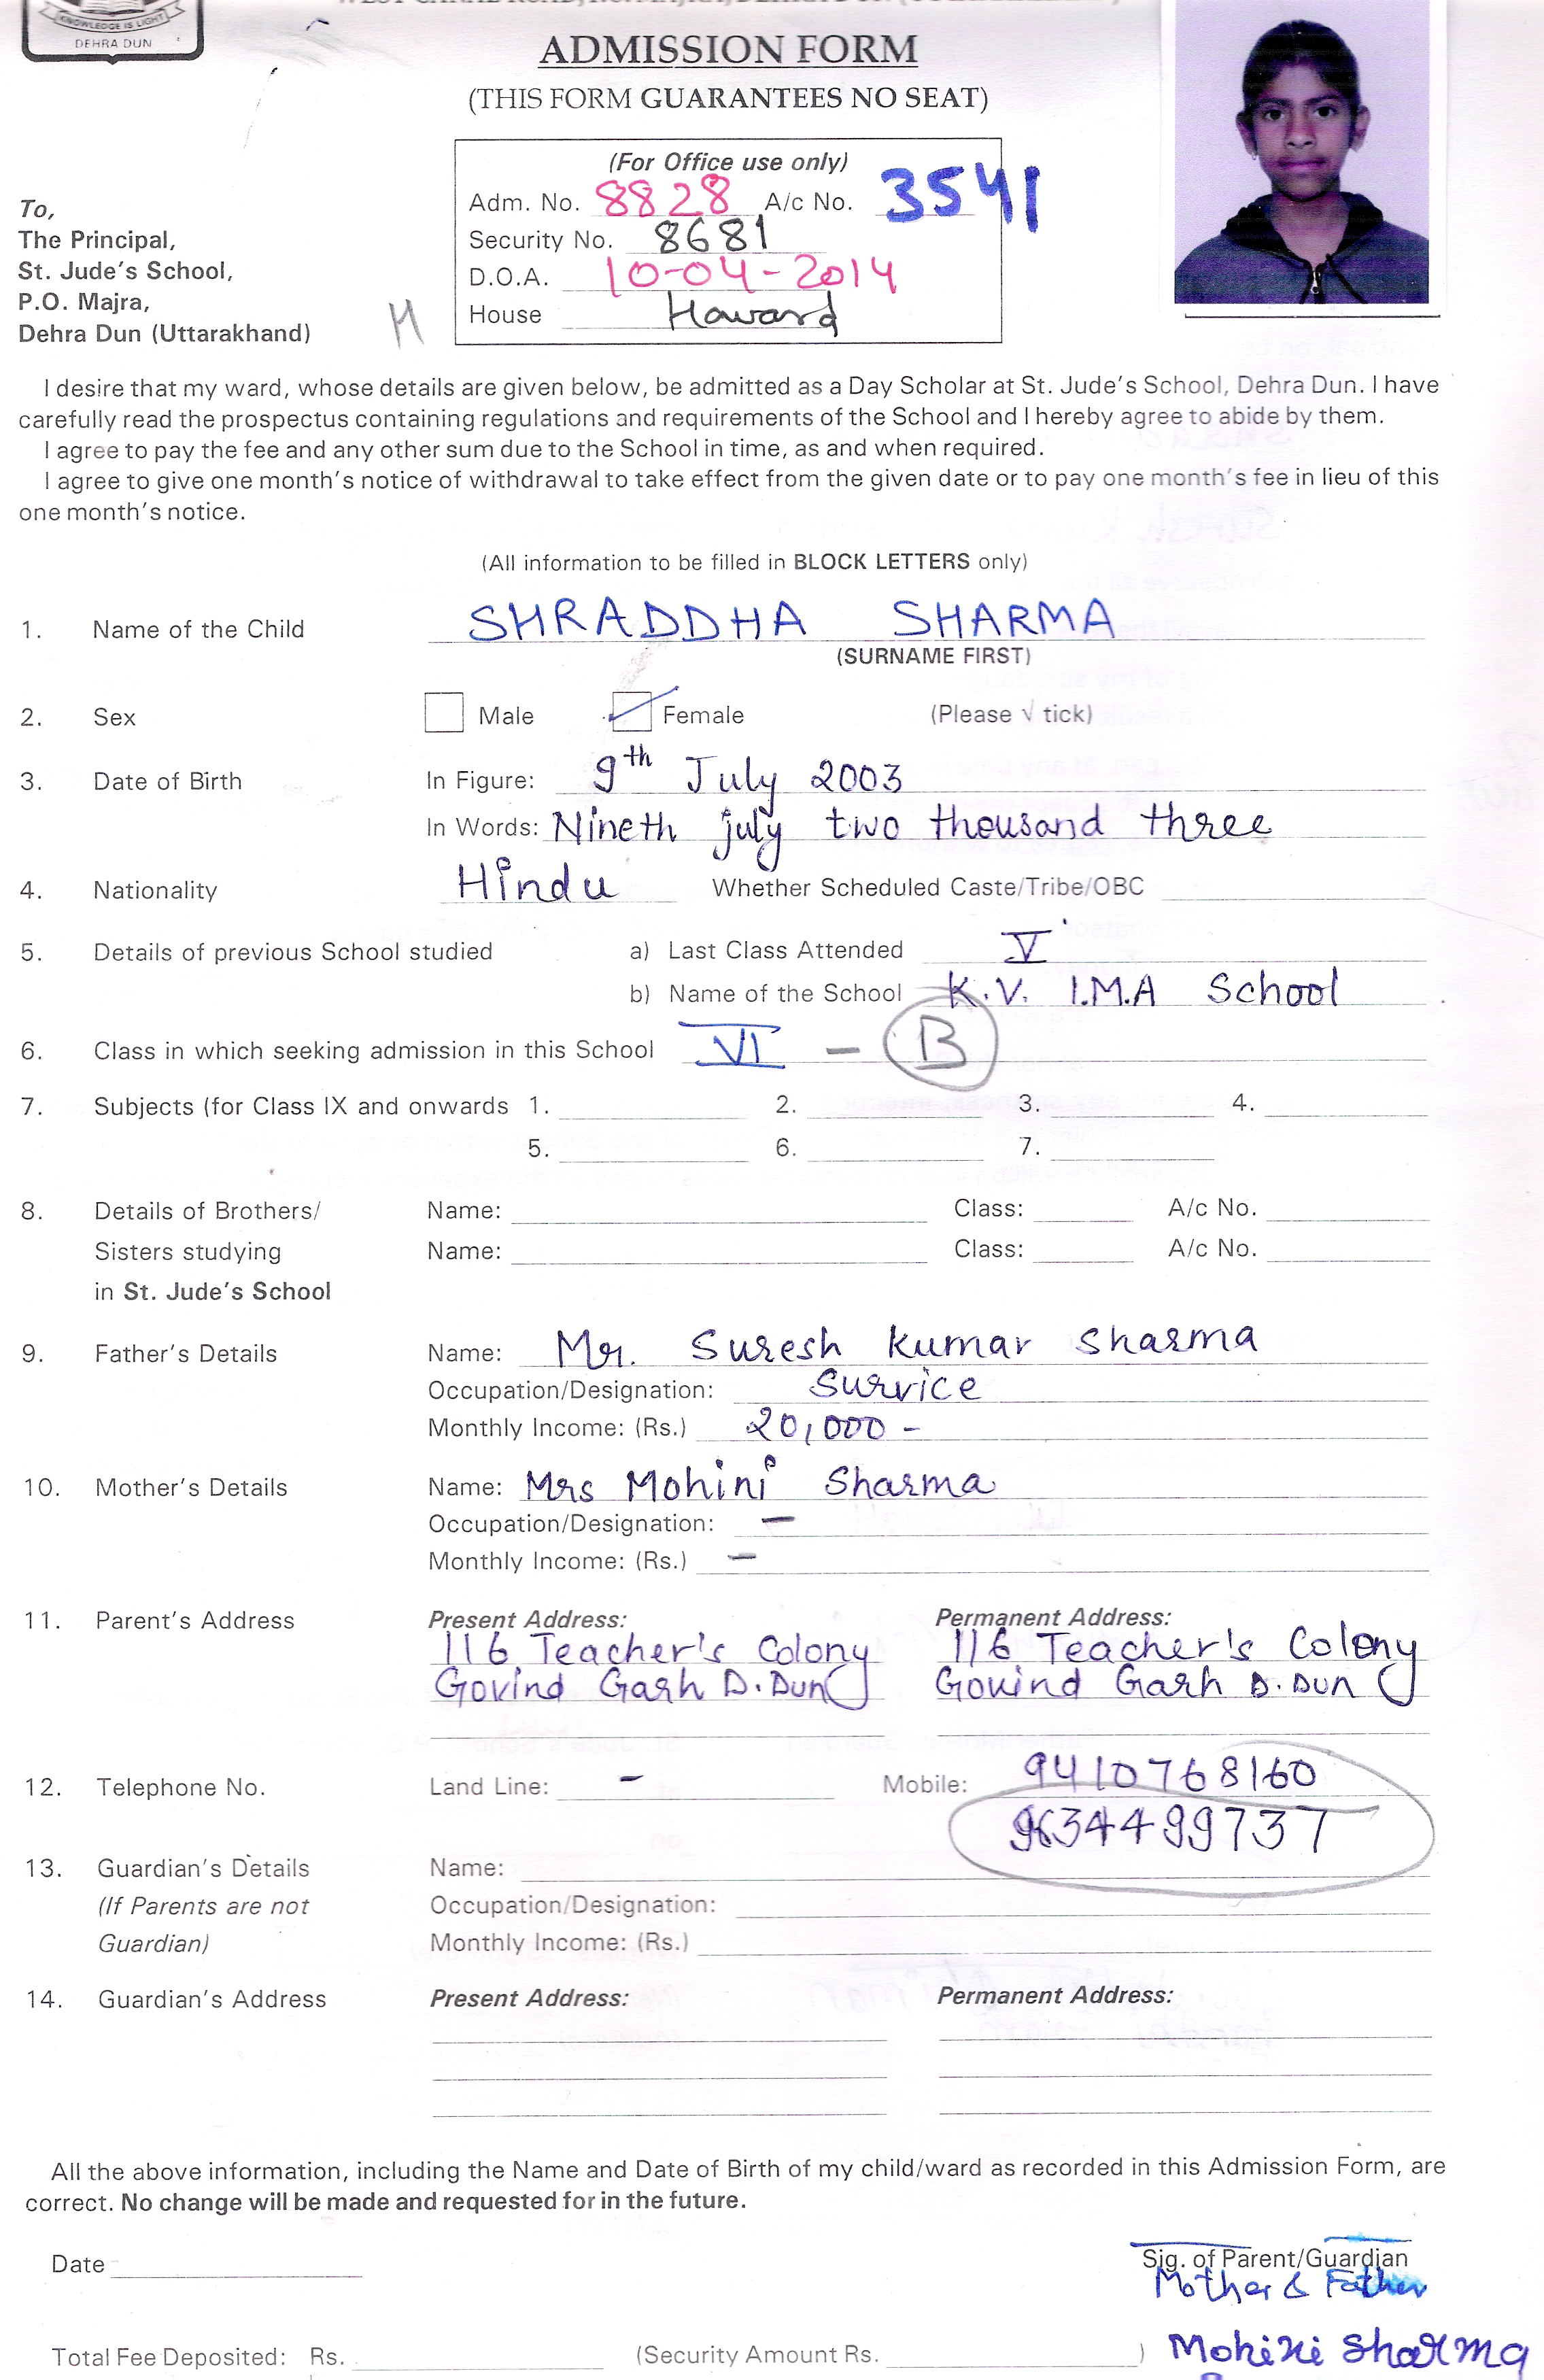 KNOWLEDGE IS LIGHT
DEHRA DUN
ADMISSION FORM
(THIS FORM GUARANTEES NO SEAT)
(For Office use only)
Adm. No. 8828 A/c No. 3541
Security No. 8681
D.O.A. 10-04-2014
House Haward
To,
The Principal,
St. Jude's School,
P.O. Majra,
Dehra Dun (Uttarakhand)
H
I desire that my ward, whose details are given below, be admitted as a Day Scholar at St. Jude's School, Dehra Dun. I have
carefully read the prospectus containing regulations and requirements of the School and I hereby agree to abide by them.
I agree to pay the fee and any other sum due to the School in time, as and when required.
I agree to give one month's notice of withdrawal to take effect from the given date or to pay one month's fee in lieu of this
one month's notice.
(All information to be filled in BLOCK LETTERS only)
1. Name of the Child SHRADDHA SHARMA
(SURNAME FIRST)
2. Sex Male Female (Please √ tick)
3. Date of Birth In Figure: 9th July 2003
In Words: Nineth july two thousand three
4. Nationality Hindu Whether Scheduled Caste/Tribe/OBC
5. Details of previous School studied a) Last Class Attended V
b) Name of the School K.V. I.M.A School
6. Class in which seeking admission in this School VI - B
7. Subjects (for Class IX and onwards 1. 2. 3. 4.
5. 6. 7.
8. Details of Brothers/ Name: Class: A/c No.
Sisters studying Name: Class: A/c No.
in St. Jude's School
9. Father's Details Name: Mr. Suresh Kumar Sharma
Occupation/Designation: Survice
Monthly Income: (Rs.) 20,000 -
10. Mother's Details Name: Mrs Mohini Sharma
Occupation/Designation: -
Monthly Income: (Rs.) -
11. Parent's Address Present Address: Permanent Address:
116 Teacher's Colony 116 Teacher's Colony
Govind Garh D.Dun Govind Garh D.Dun
12. Telephone No. Land Line: - Mobile: 9410768160
9634499737
13. Guardian's Details Name:
(If Parents are not Occupation/Designation:
Guardian) Monthly Income: (Rs.)
14. Guardian's Address Present Address: Permanent Address:
All the above information, including the Name and Date of Birth of my child/ward as recorded in this Admission Form, are
correct. No change will be made and requested for in the future.
Date Sig. of Parent/Guardian
Mother & Father
Total Fee Deposited: Rs. (Security Amount Rs. ) Mohini Sharma